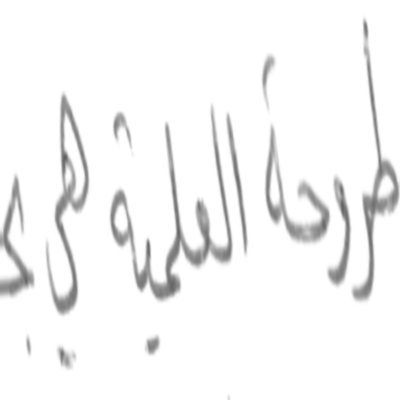 طروحة العلمية هي